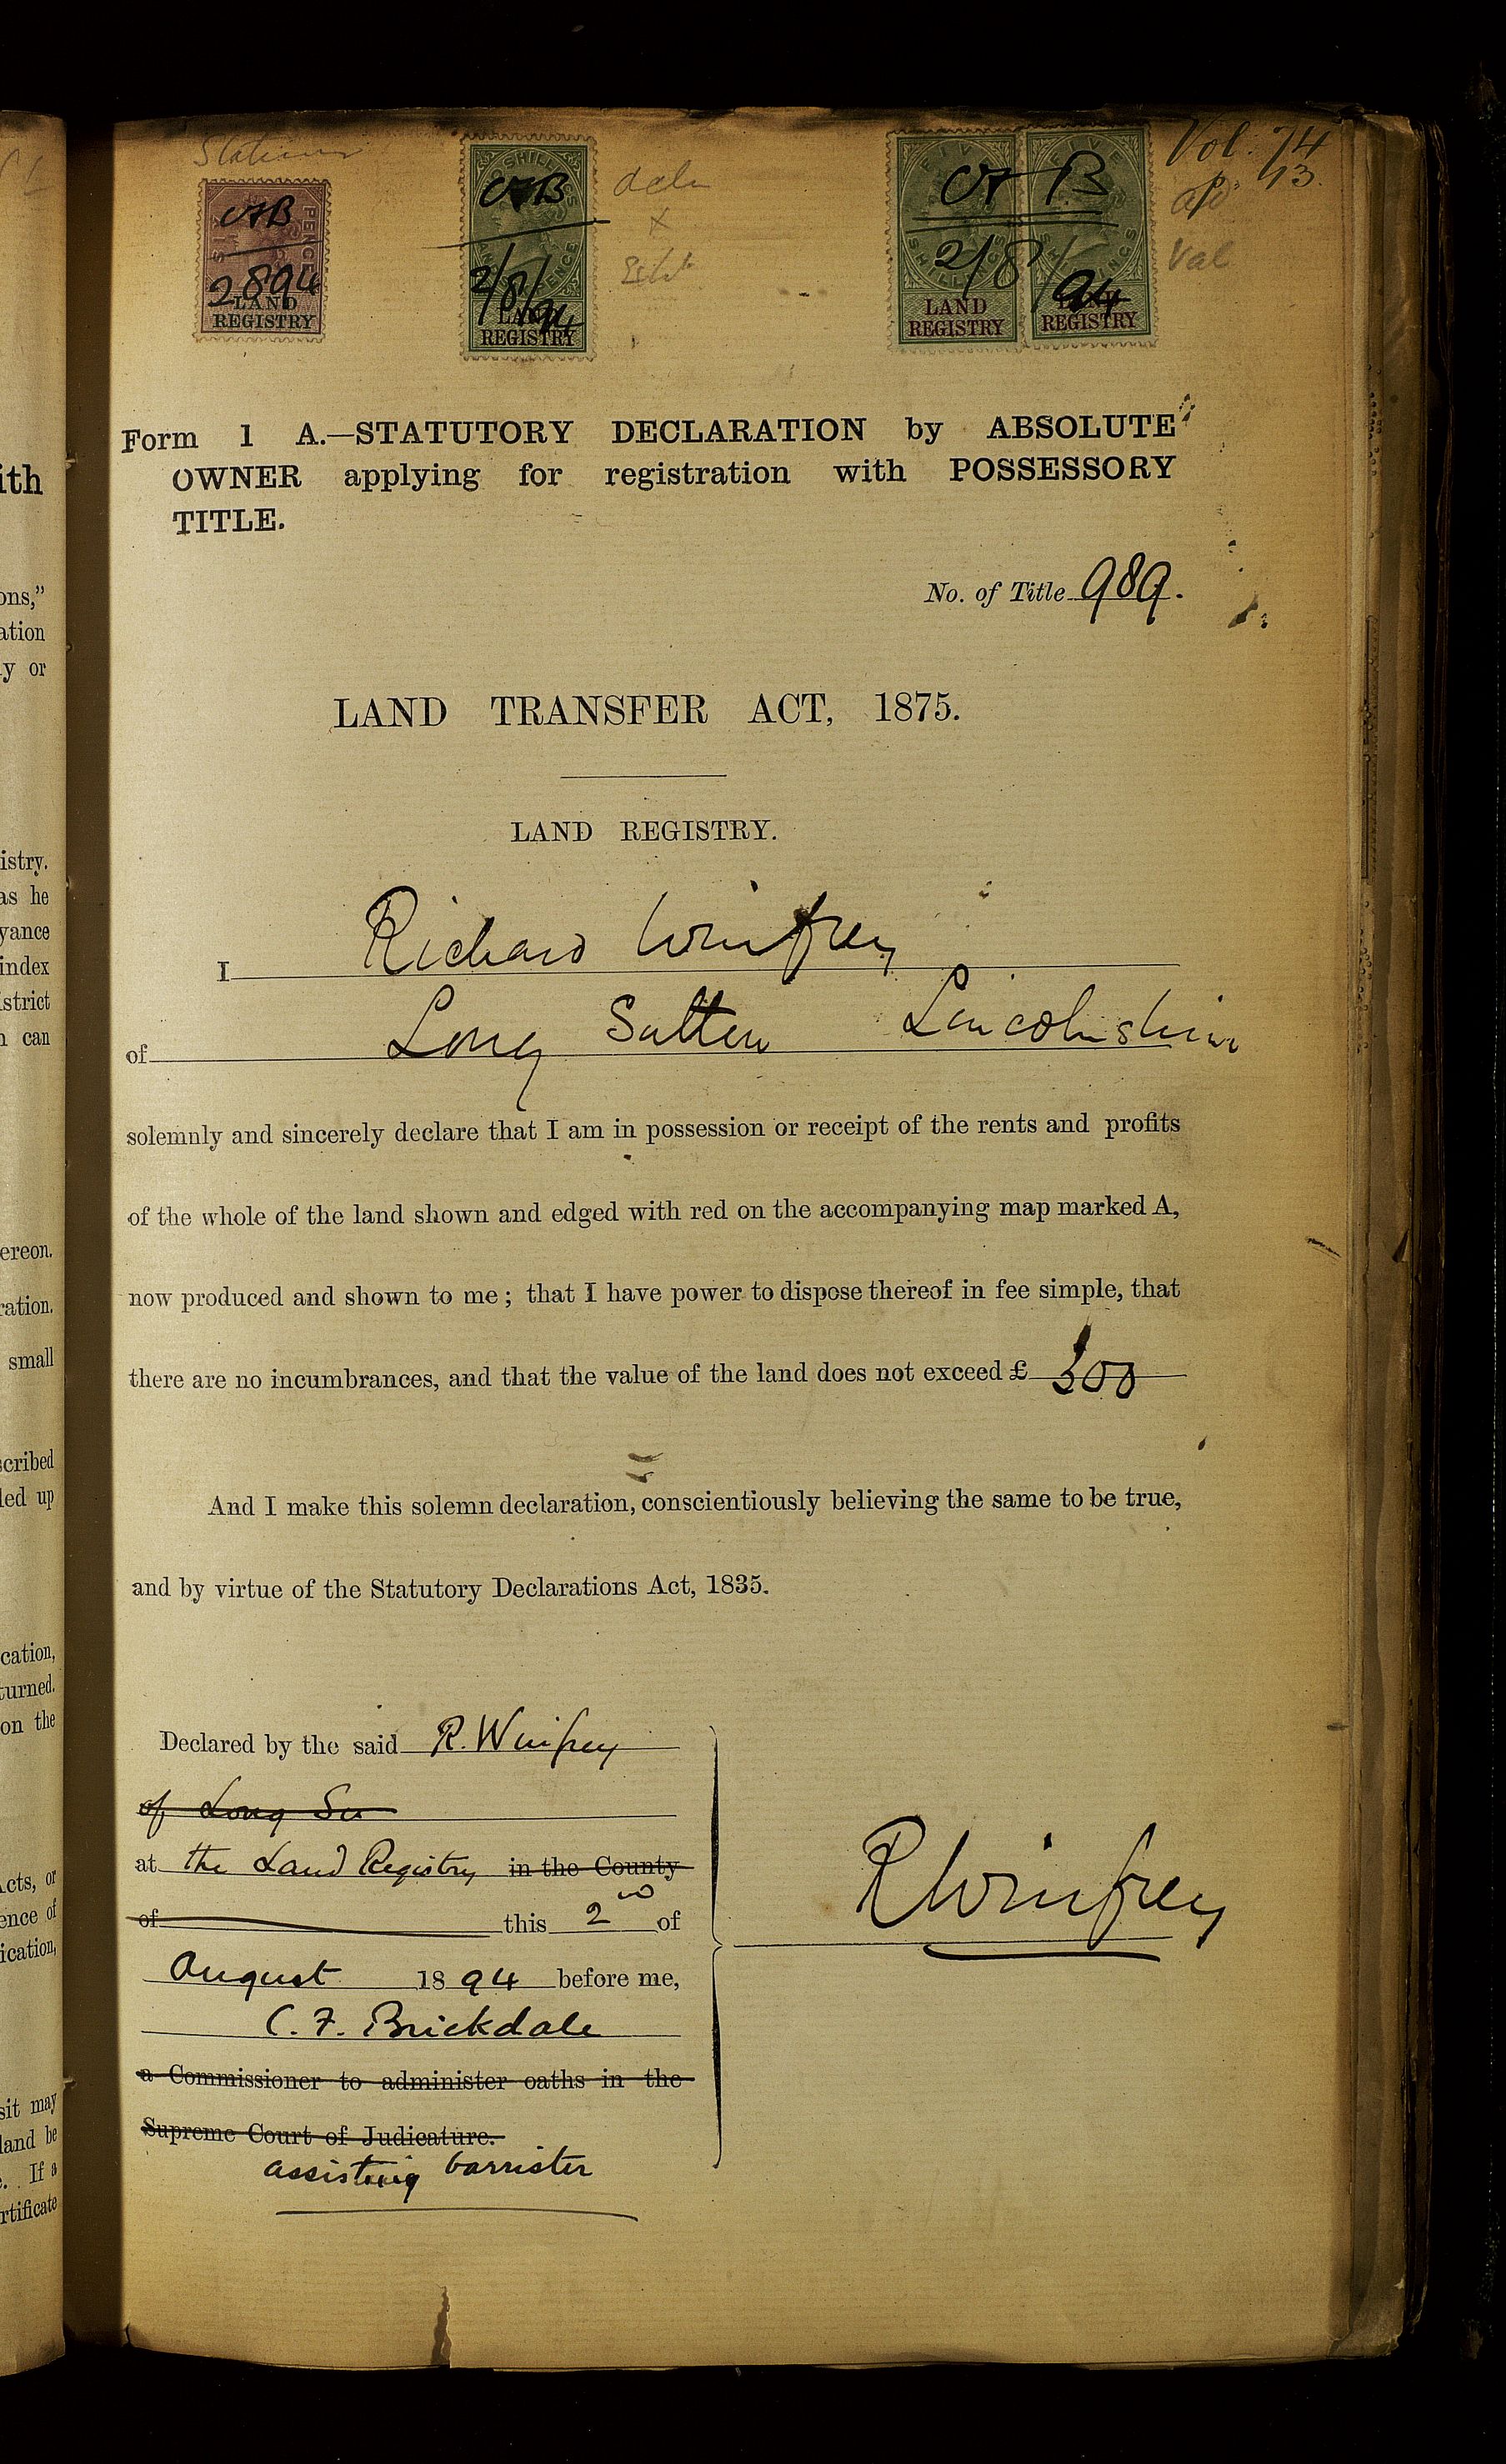 Vol. 74
p. 13.
Val
CFB
2/8/94
LAND
REGISTRY
CFB
2/8/94
LAND
REGISTRY
CFB
2/8/94
FIVE
SHILLINGS
LAND
REGISTRY
FIVE
SHILLINGS
REGISTRY
Form 1 A.—STATUTORY DECLARATION by ABSOLUTE
OWNER applying for registration with POSSESSORY
TITLE.
No. of Title 989.
LAND TRANSFER ACT, 1875.
LAND REGISTRY.
I Richard Winfrey
of Long Sutton Lincolnshire
solemnly and sincerely declare that I am in possession or receipt of the rents and profits
of the whole of the land shown and edged with red on the accompanying map marked A,
now produced and shown to me; that I have power to dispose thereof in fee simple, that
there are no incumbrances, and that the value of the land does not exceed £ 300
And I make this solemn declaration, conscientiously believing the same to be true,
and by virtue of the Statutory Declarations Act, 1835.
Declared by the said R. Winfrey
of Long Su
at the Land Registry in the County
of this 2nd of
August 1894 before me,
C. F. Brickdale
a Commissioner to administer oaths in the
Supreme Court of Judicature.
assisting barrister
RWinfrey
ith
ons,"
ation
y or
istry.
as he
yance
index
istrict
n can
ereon.
ration.
small
scribed
led up
cation,
turned.
on the
Acts, or
ence of
ication,
sit may
land be
. If a
rtificate